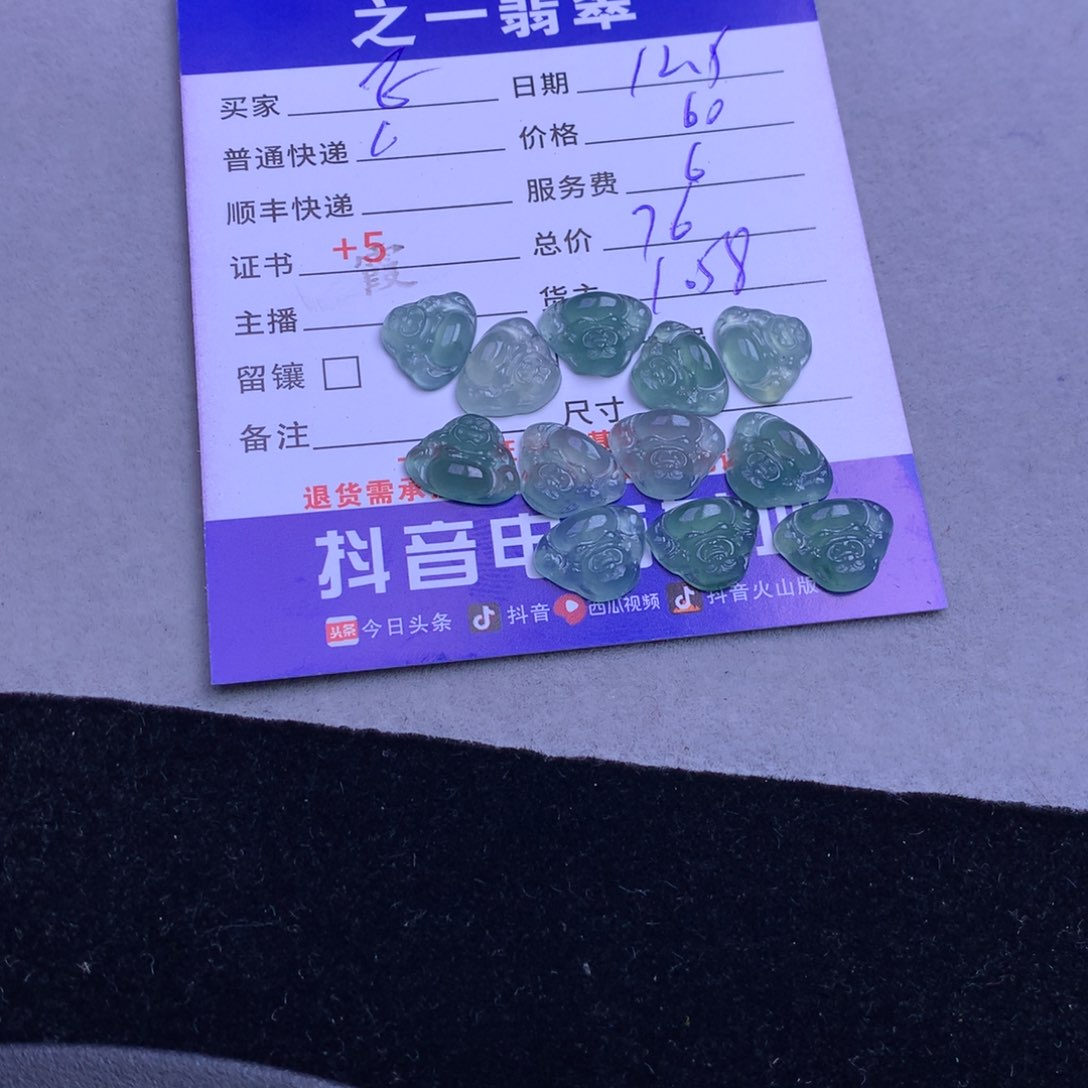 之一翡翠
买家 日期 12.5
普通快递 6 价格 60
顺丰快递 服务费 6
证书 +5 霞 总价 76
主播 货主 158
留镶
备注 尺寸
退货需承
抖音电
头条 今日头条 抖音 西瓜视频 抖音火山版